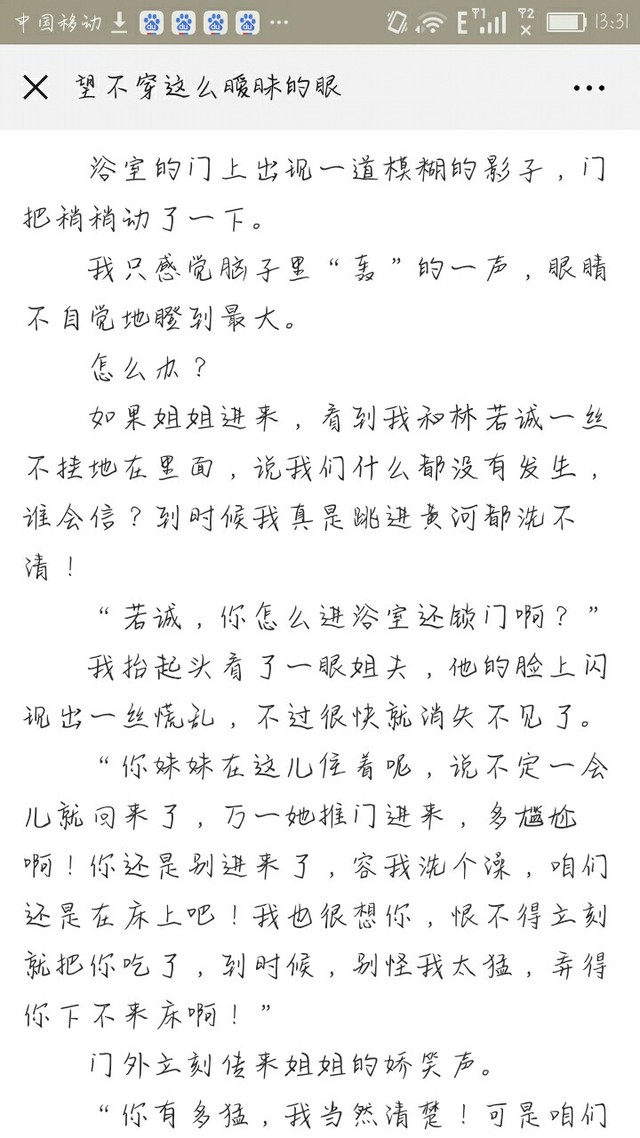 中国移动 E T1 T2 13:31
望不穿这么暧昧的眼
浴室的门上出现一道模糊的影子，门
把稍稍动了一下。
我只感觉脑子里“轰”的一声，眼睛
不自觉地瞪到最大。
怎么办？
如果姐姐进来，看到我和林若诚一丝
不挂地在里面，说我们什么都没有发生，
谁会信？到时候我真是跳进黄河都洗不
清！
“若诚，你怎么进浴室还锁门啊？”
我抬起头看了一眼姐夫，他的脸上闪
现出一丝慌乱，不过很快就消失不见了。
“你妹妹在这儿住着呢，说不定一会
儿就回来了，万一她推门进来，多尴尬
啊！你还是别进来了，容我洗个澡，咱们
还是在床上吧！我也很想你，恨不得立刻
就把你吃了，到时候，别怪我太猛，弄得
你下不来床啊！”
门外立刻传来姐姐的娇笑声。
“你有多猛，我当然清楚！可是咱们